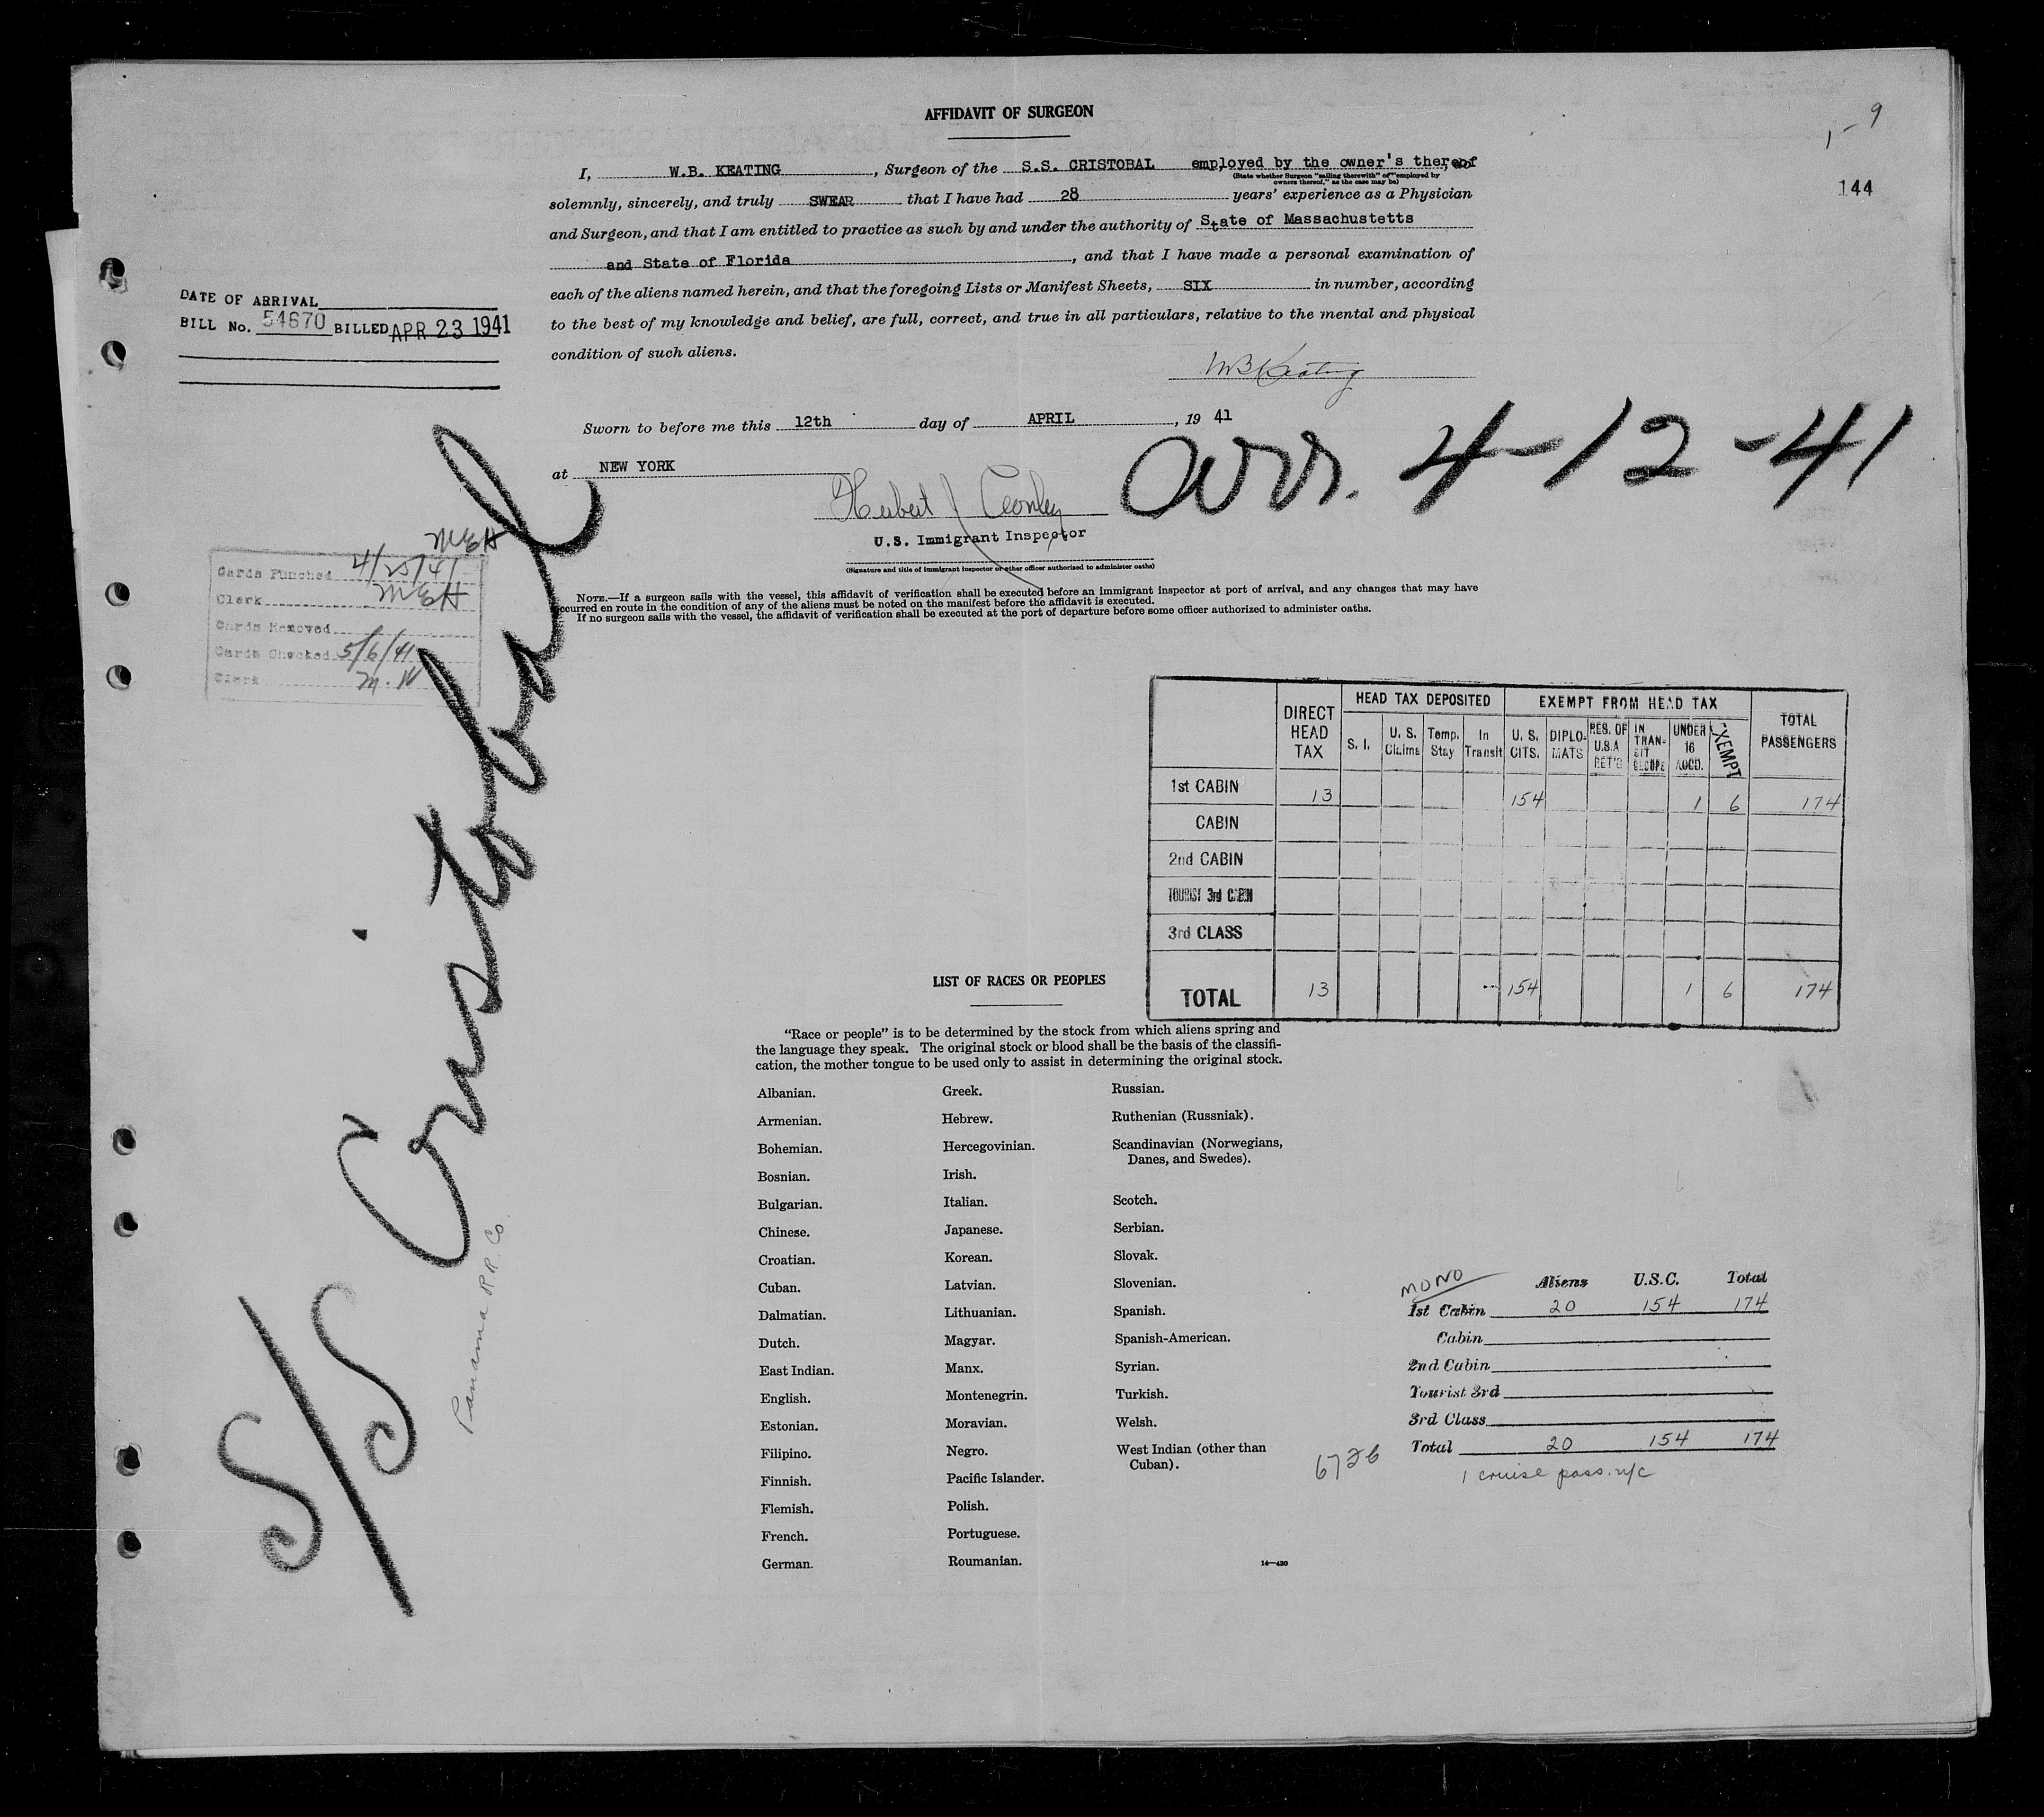 AFFIDAVIT OF SURGEON
1-9
144
I, W.B. KEATING, Surgeon of the S.S. CRISTOBAL employed by the owner's thereof
(State whether Surgeon "sailing therewith" or "employed by
owners thereof," as the case may be)
solemnly, sincerely, and truly SWEAR that I have had 28 years' experience as a Physician
and Surgeon, and that I am entitled to practice as such by and under the authority of State of Massachustetts
and State of Florida, and that I have made a personal examination of
each of the aliens named herein, and that the foregoing Lists or Manifest Sheets, SIX in number, according
to the best of my knowledge and belief, are full, correct, and true in all particulars, relative to the mental and physical
condition of such aliens.
WB Keating
DATE OF ARRIVAL
BILL No. 54670 BILLED APR 23 1941
Sworn to before me this 12th day of APRIL, 19 41
at NEW YORK
arr. 4-12-41
Herbert J
U.S. Immigrant Inspector
(Signature and title of immigrant inspector or other officer authorized to administer oaths)
NOTE.—If a surgeon sails with the vessel, this affidavit of verification shall be executed before an immigrant inspector at port of arrival, and any changes that may have
occurred en route in the condition of any of the aliens must be noted on the manifest before the affidavit is executed.
If no surgeon sails with the vessel, the affidavit of verification shall be executed at the port of departure before some officer authorized to administer oaths.
MEH
Cards Punched 4/25/41
Clerk MEH
Cards Removed
Cards Checked 5/6/41
Clerk M.W
S/S Cristobal
Panama R.R. Co.
DIRECT HEAD TAX
HEAD TAX DEPOSITED
EXEMPT FROM HEAD TAX
TOTAL PASSENGERS
S. I. U. S. Claims Temp. Stay In Transit U. S. CITS. DIPLO-MATS RES. OF U.S.A RET'G IN TRAN-SIT UNDER 16 ACCD. EXEMPT
1st CABIN 13 154 1 6 174
CABIN
2nd CABIN
TOURIST 3rd CABIN
3rd CLASS
TOTAL 13 154 1 6 174
LIST OF RACES OR PEOPLES
"Race or people" is to be determined by the stock from which aliens spring and
the language they speak. The original stock or blood shall be the basis of the classifi-
cation, the mother tongue to be used only to assist in determining the original stock.
Albanian.
Armenian.
Bohemian.
Bosnian.
Bulgarian.
Chinese.
Croatian.
Cuban.
Dalmatian.
Dutch.
East Indian.
English.
Estonian.
Filipino.
Finnish.
Flemish.
French.
German.
Greek.
Hebrew.
Hercegovinian.
Irish.
Italian.
Japanese.
Korean.
Latvian.
Lithuanian.
Magyar.
Manx.
Montenegrin.
Moravian.
Negro.
Pacific Islander.
Polish.
Portuguese.
Roumanian.
Russian.
Ruthenian (Russniak).
Scandinavian (Norwegians,
Danes, and Swedes).
Scotch.
Serbian.
Slovak.
Slovenian.
Spanish.
Spanish-American.
Syrian.
Turkish.
Welsh.
West Indian (other than
Cuban).
14—430
MONO
Aliens U.S.C. Total
1st Cabin 20 154 174
Cabin
2nd Cabin
Tourist 3rd
3rd Class
Total 20 154 174
1 cruise pass. n/c
6726